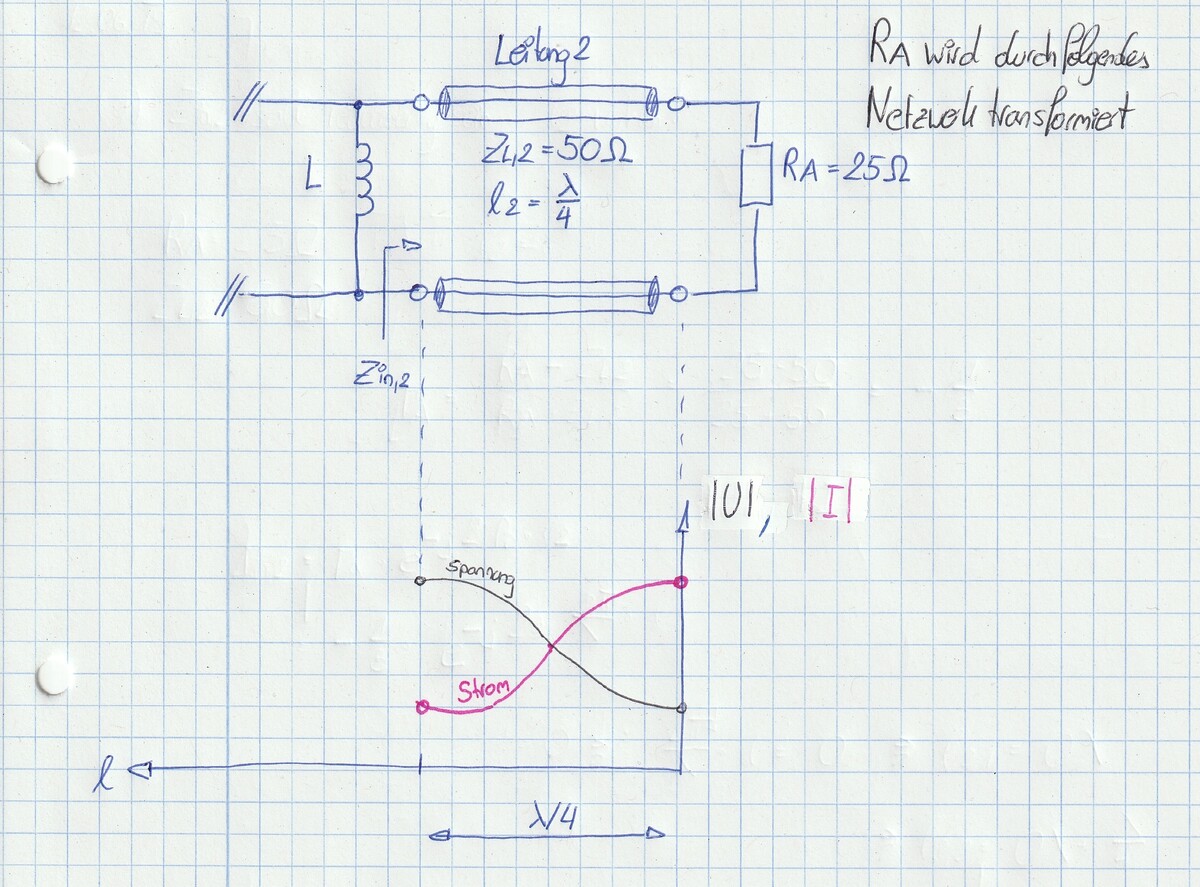 Leitung 2
RA wird durch folgendes
Netzwerk transformiert
L
ZL,2 = 50Ω
l2 = λ/4
RA = 25Ω
Zin,2
|U|, |I|
Spannung
Strom
l
λ/4